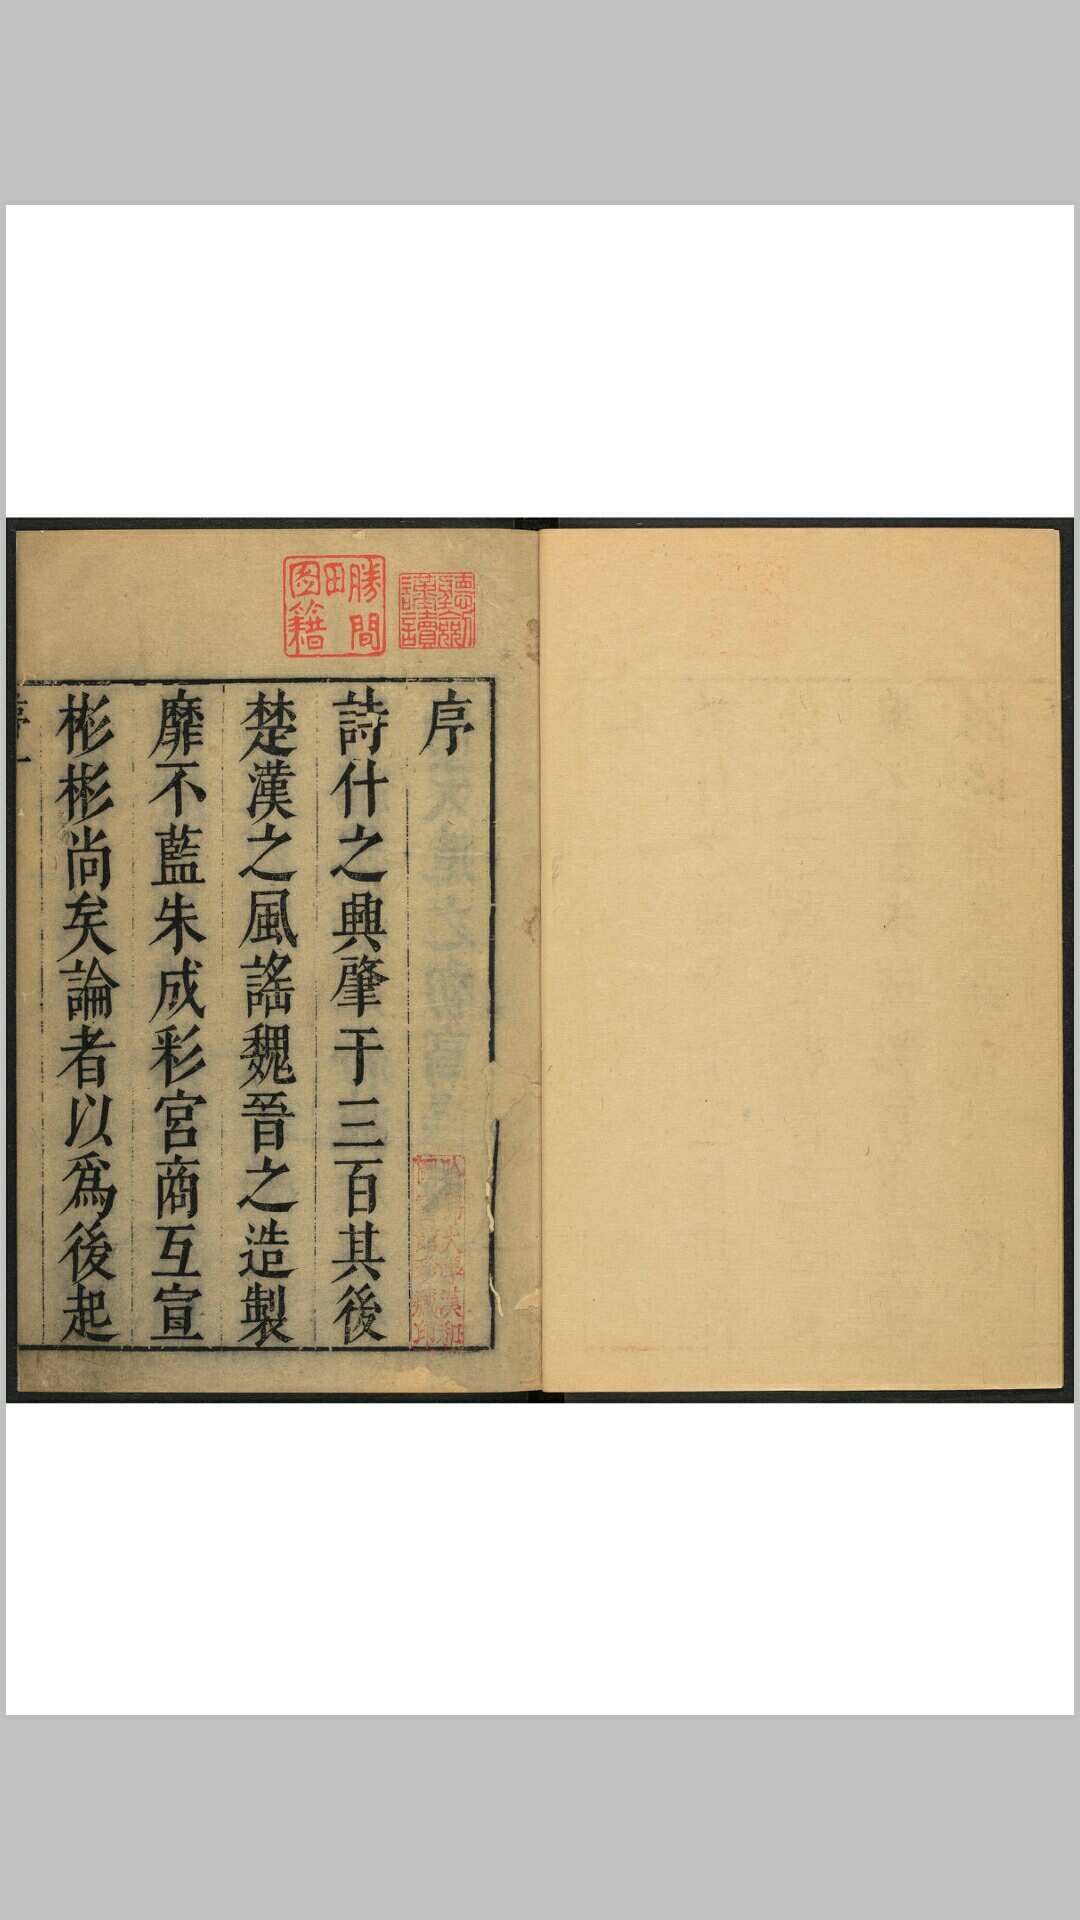 序
詩什之興肇于三百其後
楚漢之風謠魏晉之造製
靡不藍朱成彩宮商互宣
彬彬尚矣論者以爲後起
勝間
田
圖籍